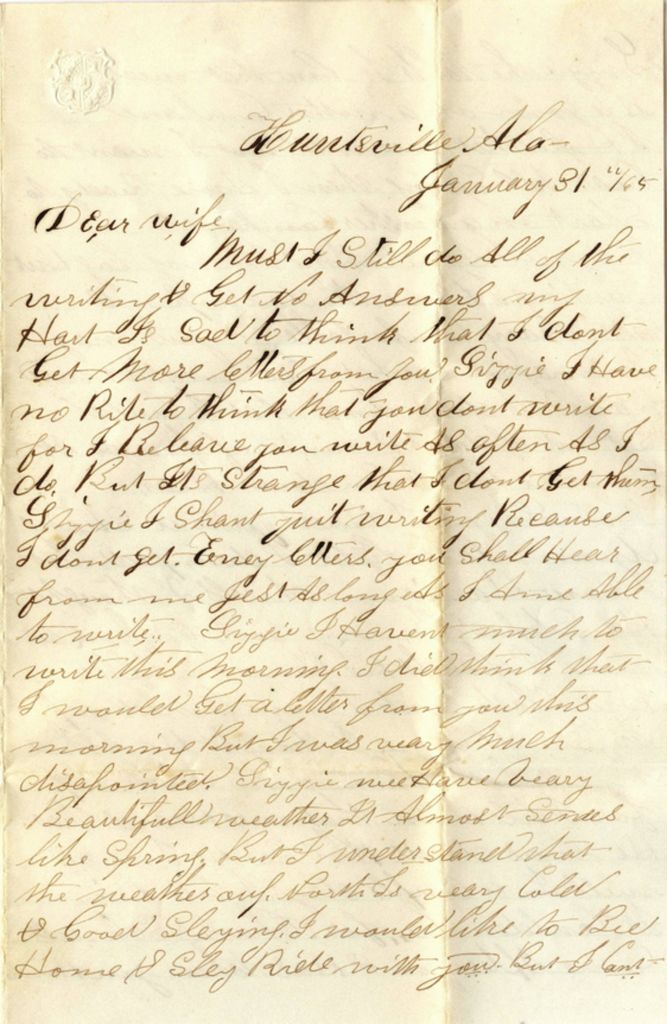 Huntsville Ala-
January 31 "/65
Dear wife
Must I Still do All of the
writing & Get No Answers my
Hart Is Sad to think that I dont
Get More letters from you. Lizzie I Have
no Rite to think that you dont write
for I Beleave you write As often As I
do, But Its Strange that I dont Get them,
Lizzie I Shant quit writing Because
I dont get. Eney letters. you Shall Hear
from me Jest As long As I Ame Able
to write.. Lizzie I Havent much to
write this Morning. I did think that
I would Get a letter from you this
morning But I was veary Much
disapointed. Lizzie wee Have Veary
Beautifull weather It Almost Semes
like Spring, But I understand that
the weather up North Is veary Cold
& Good Sleying. I would like to Bee
Home & Sley Ride with you. But I Cant-